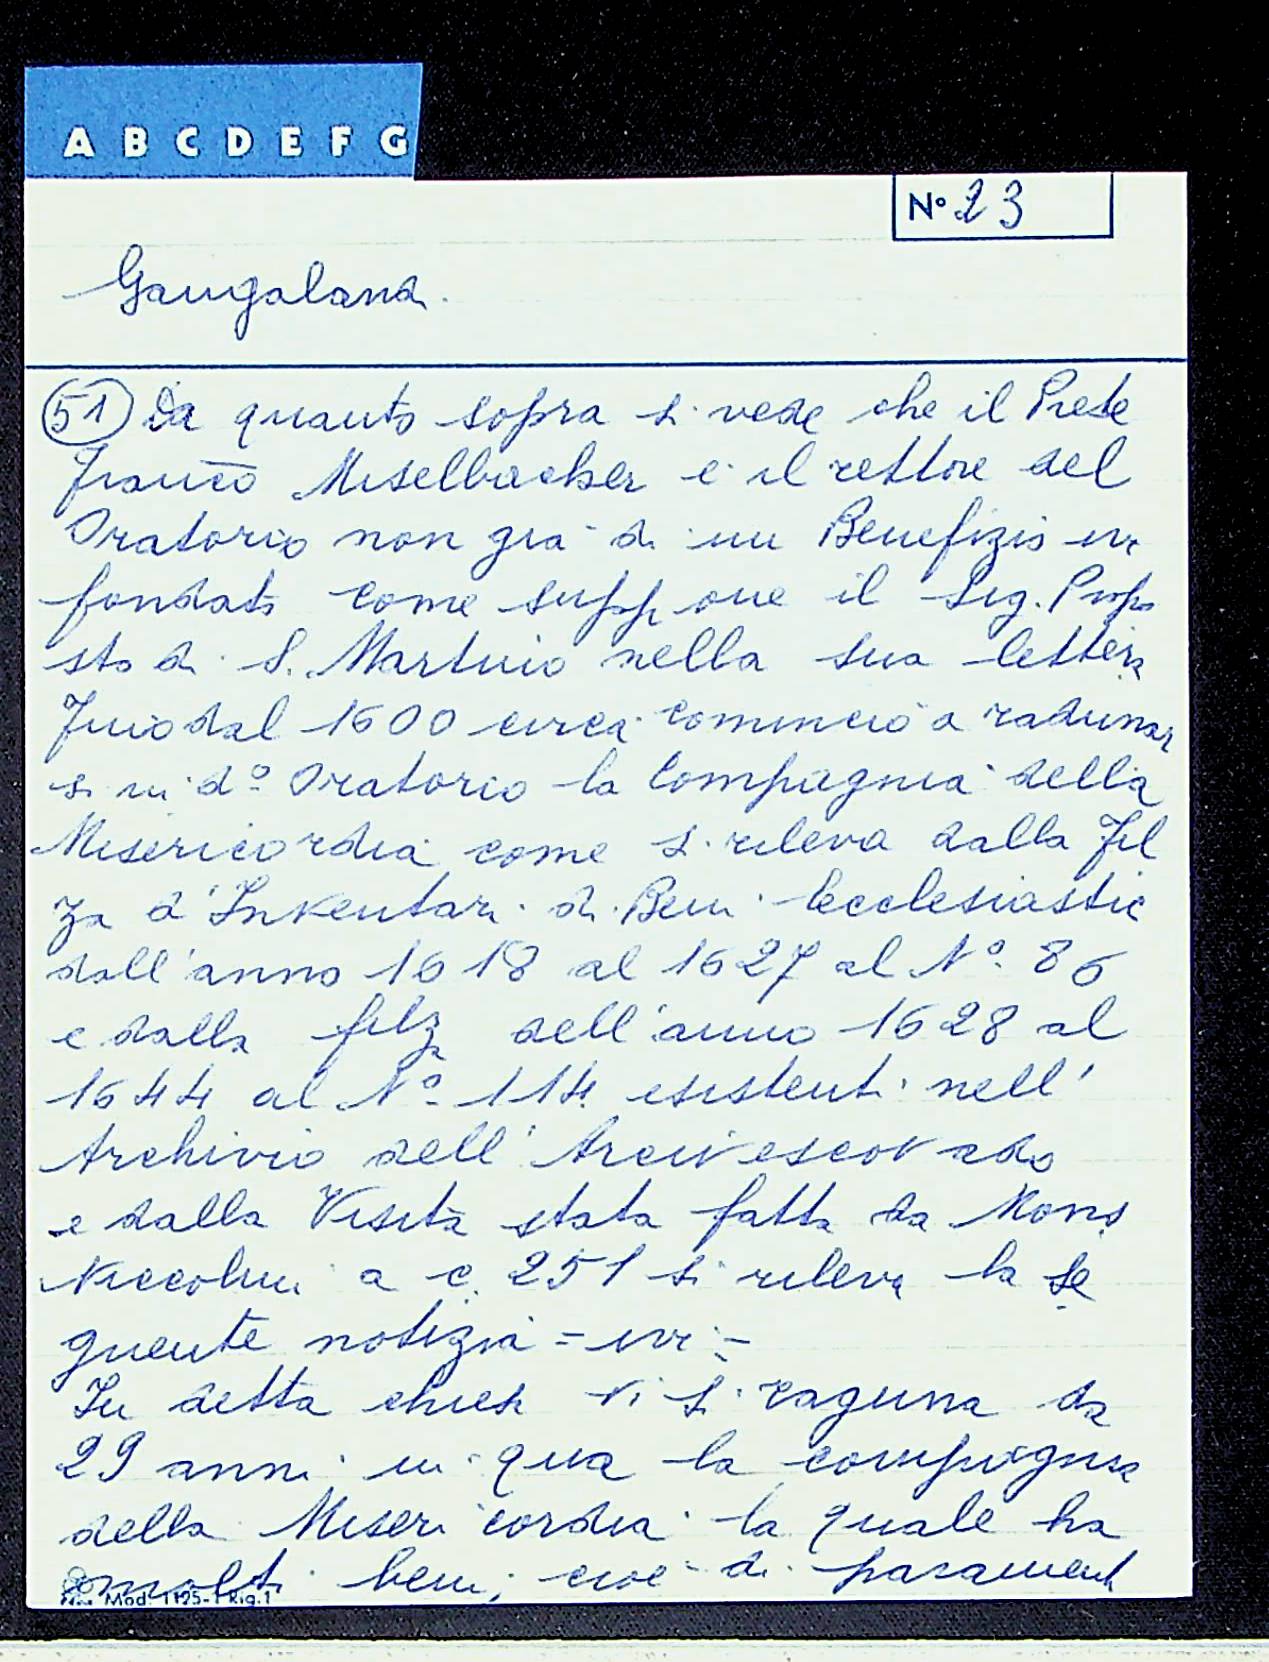 A B C D E F G
Nº 23
Gangalandi
51 Da quanto sopra si vede che il Prete
Franco Miselbacher è il rettore del
Oratorio non già di un Benefizio ivi
fondato come suppone il Sig. Propo
sto di S. Martino nella sua lettera
Fino dal 1600 circa cominciò a radunar
si in dº Oratorio la Compagnia della
Misericordia come si rileva dalla Fil
za d'Inventari di Beni Ecclesiastic
dall'anno 1618 al 1627 al Nº. 86
e dalla filza dell'anno 1628 al
1644 al Nº 114 esistenti nell'
Archivio dell'Arcivescovado
e dalla Visita stata fatta da Mons
Niccolini a c. 251 si rileva la se
guente notizia = ivi =
In detta chiesa vi si raguna da
29 anni in qua la compagnia
della Misericordia la quale ha
molti beni, cioè di parament
Mod. 1125-1 Rig.1